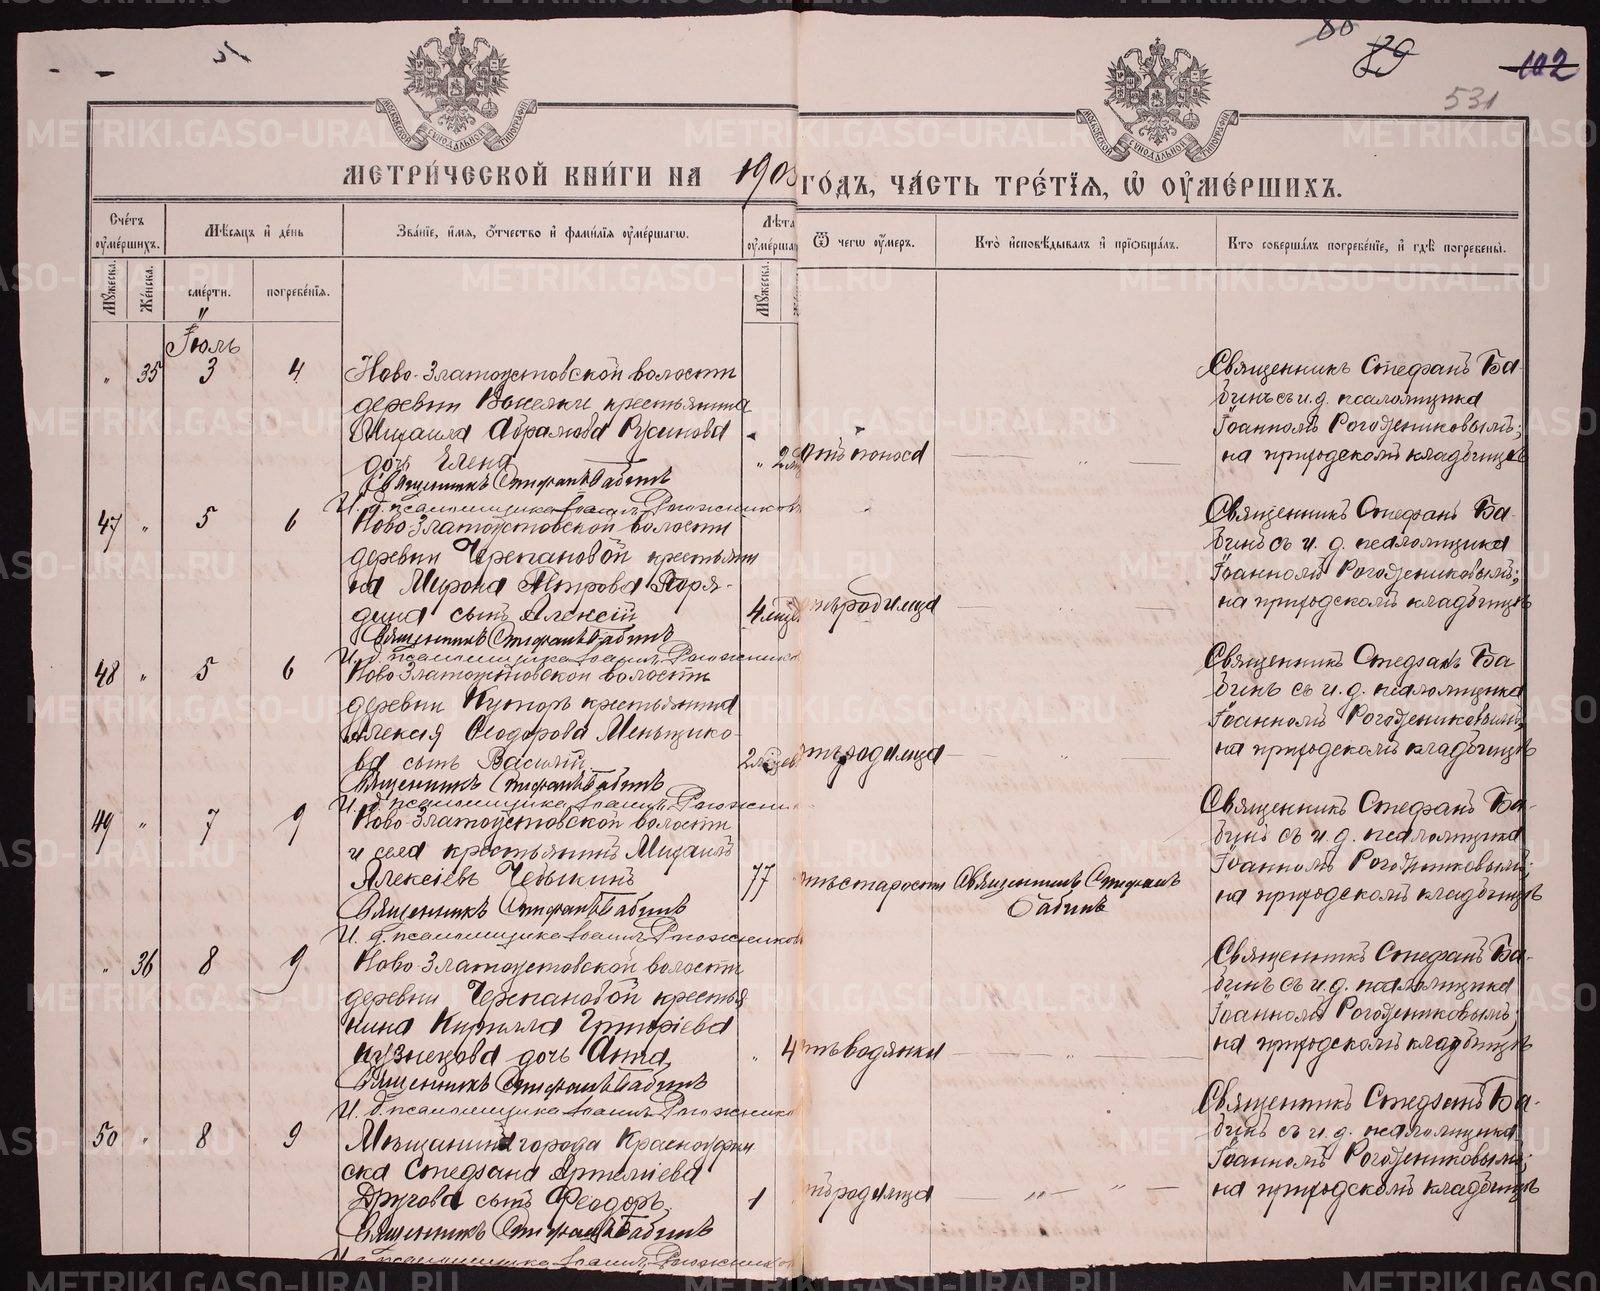 80
89
102
531
МОСКОВСКОЙ СѴНОДАЛЬНОЙ ТИПОГРАФІИ
МОСКОВСКОЙ СѴНОДАЛЬНОЙ ТИПОГРАФІИ
МЕТРИ́ЧЕСКОЙ КНИ́ГИ НА 1903 ГО́ДЪ, ЧА́СТЬ ТРЕ́ТЇѦ, Ѡ҆ ОУ҆МЕ́РШИХЪ.
Сче́тъ оу҆ме́ршихъ.
Мꙋ́жеска.
Же́нска.
Мѣ́сѧцъ и҆ де́нь
сме́рти.
погребе́нїѧ.
Зва́нїе, и҆́мѧ, ѻ҆́тчество и҆ фамилїѧ оу҆ме́ршагѡ.
Лѣ́та
Мꙋ́жеска.
Ѿ чегѡ̀ оу҆́меръ.
Кто̀ и҆сповѣ́дывалъ и҆ прїѡбща́лъ.
Кто соверша́лъ погребе́нїе, и҆ гдѣ̀ погребены̀.
Іюль
" 35 3 4
Ново-Златоустовской волости
деревни Выселки крестьянина
Михаила Абрамова Русинова
дочь Елена
Священникъ Стефанъ Бабинъ
И. д. псаломщика Іоаннъ Рогожников
отъ поноса
Священникъ Стефанъ Ба-
бинъ съ и. д. псаломщика
Іоанномъ Рогожниковымъ;
на приходскомъ кладбищѣ
47 " 5 6
Ново-Златоустовской волости
деревни Черепановой крестьяни
на Мирона Петрова Поря-
дина сынъ Алексій
Священникъ Стефанъ Бабинъ
И. д. псаломщика Іоаннъ Рогожнико
4 мѣс
отъ родимца
Священникъ Стефанъ Ба-
бинъ съ и. д. псаломщика
Іоанномъ Рогожниковымъ;
на приходскомъ кладбищѣ
48 " 5 6
Ново-Златоустовской волости
деревни Куторъ крестьянина
Алексія Ѳеодорова Меньщико-
ва сынъ Василій
Священникъ Стефанъ Бабинъ
И. д. псаломщика Іоаннъ Рогожни
2 мѣсяц
отъ родимца
Священникъ Стефанъ Ба
бинъ съ и. д. псаломщика
Іоанномъ Рогожниковымъ;
на приходскомъ кладбищѣ
49 " 7 9
Ново-Златоустовской волости
и села крестьянинъ Михаилъ
Алексіевъ Чебыкинъ
Священникъ Стефанъ Бабинъ
И. д. псаломщика Іоаннъ Рогожников
77
отъ старости
Священникъ Стефанъ
Бабинъ
Священникъ Стефанъ Ба-
бинъ съ и. д. псаломщика
Іоанномъ Рогожниковымъ;
на приходскомъ кладбищѣ
" 36 8 9
Ново-Златоустовской волости
деревни Черепановой крестья
нина Кирилла Григоріева
Кузнецова дочь Анна
Священникъ Стефанъ Бабинъ
И. д. псаломщика Іоаннъ Рогожнико
" 4
отъ водянки
Священникъ Стефанъ Ба-
бинъ съ и. д. псаломщика
Іоанномъ Рогожниковымъ;
на приходскомъ кладбищѣ
50 " 8 9
Мѣщанина города Красноуфим
ска Стефана Артеміева
Другова сынъ Ѳеодоръ
Священникъ Стефанъ Бабинъ
И. д. псаломщика Іоаннъ Рогожников
1
отъ родимца
Священникъ Стефанъ Ба-
бинъ съ и. д. псаломщика
Іоанномъ Рогожниковымъ;
на приходскомъ кладбищѣ
METRIKI.GASO-URAL.RU